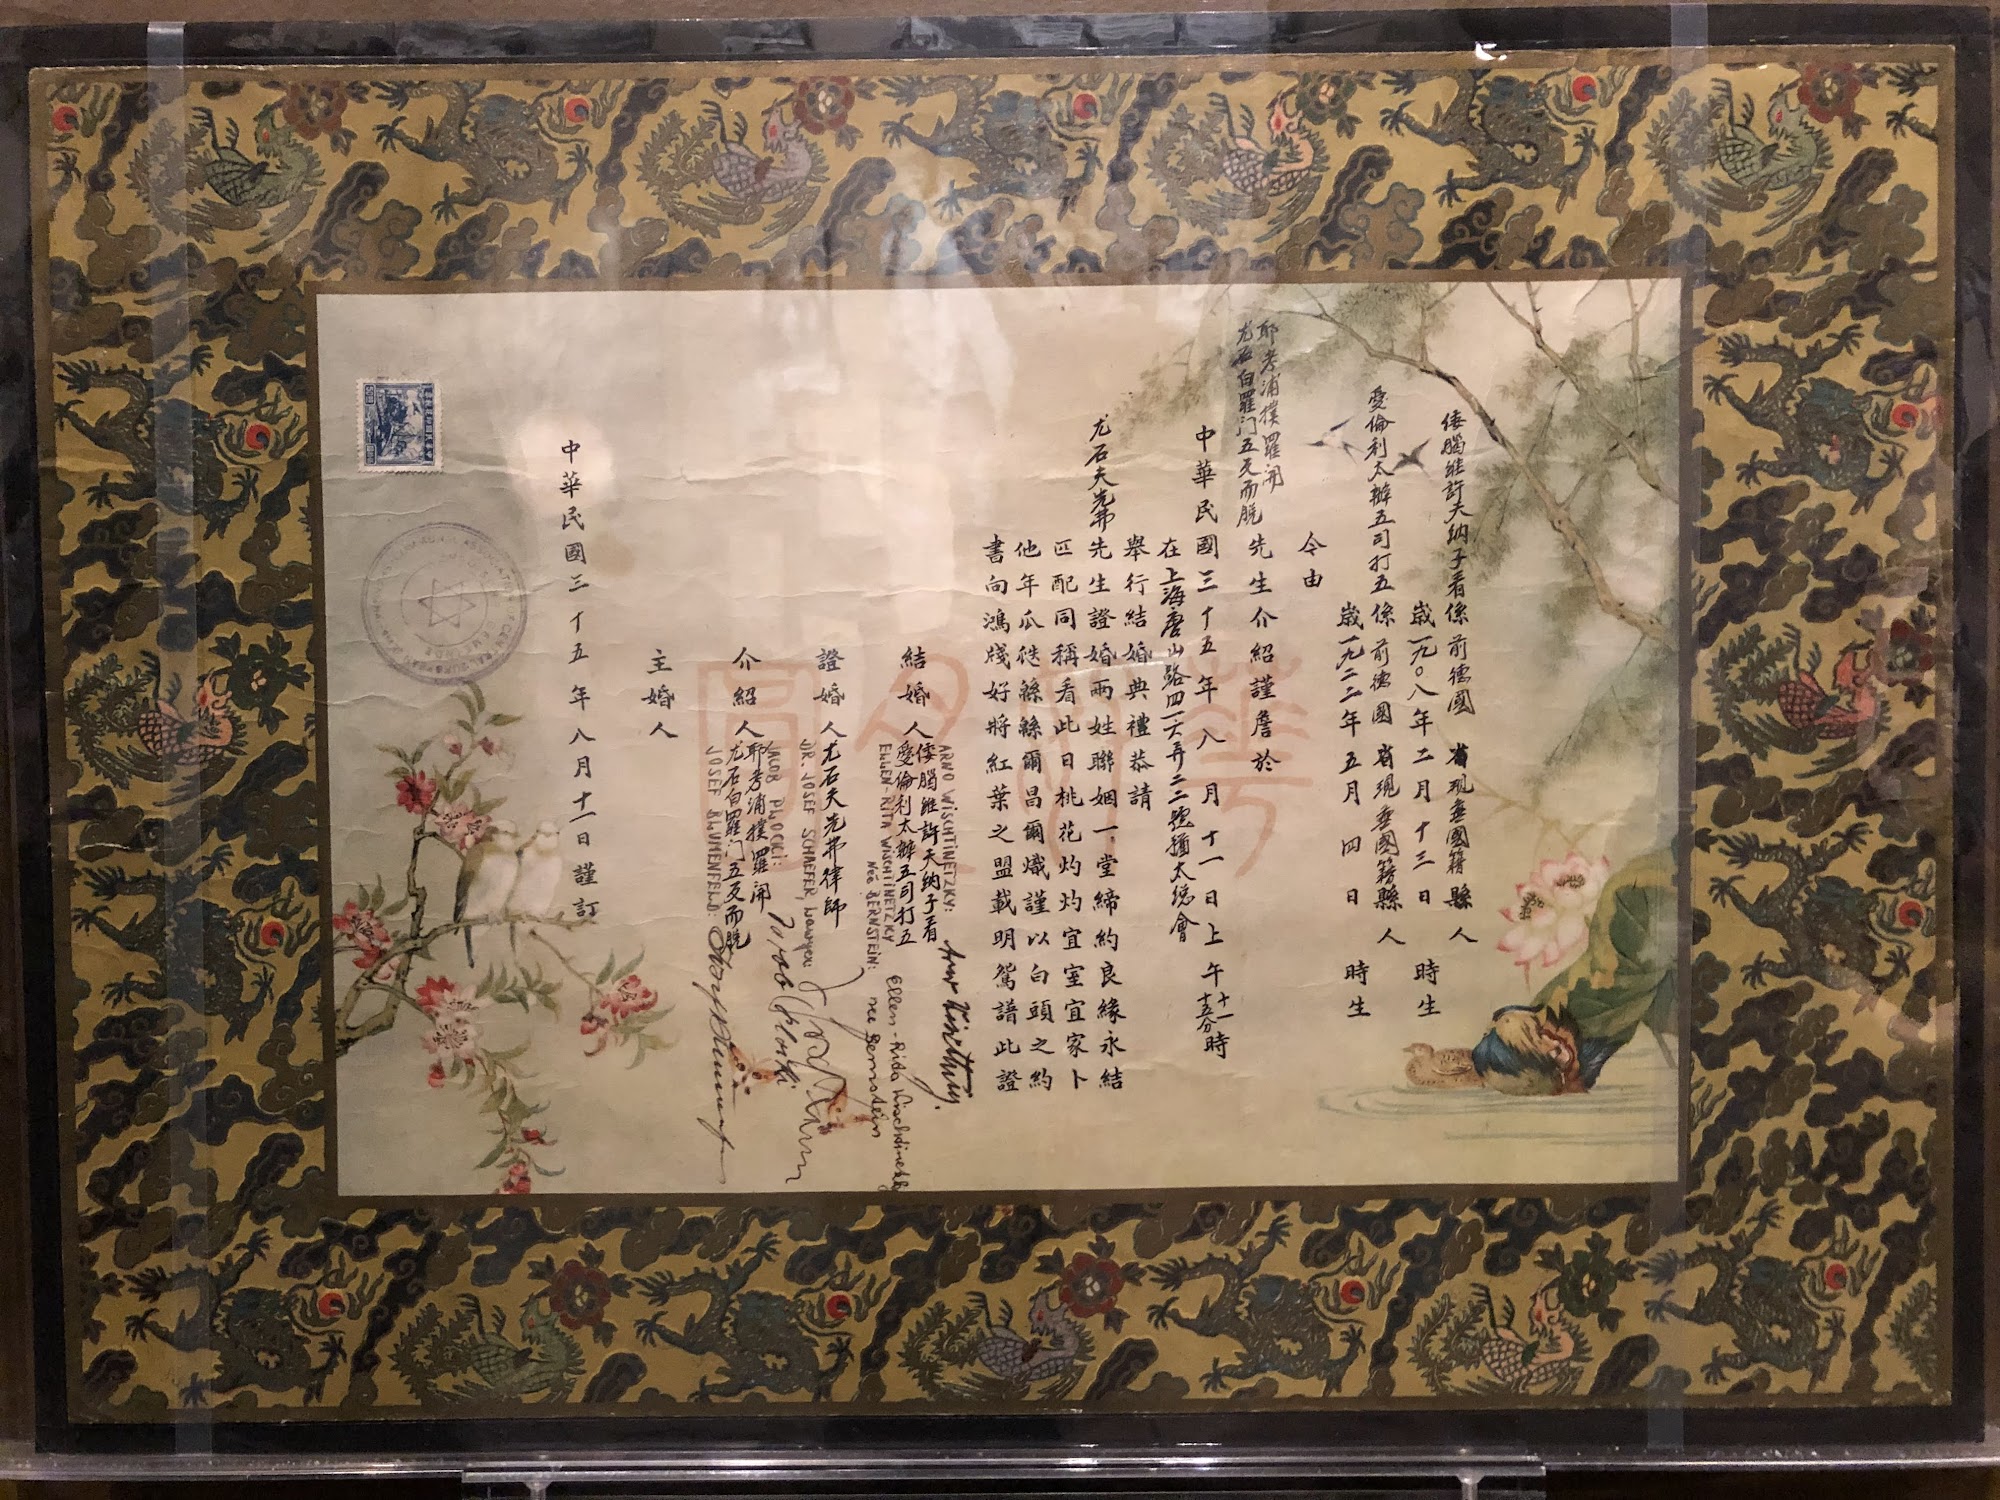 倭腦維許天納子看係前德國 省現無國籍縣人
歲一九〇八年二月十三日 時生
愛倫利太辦五司打五係前德國 省現無國籍縣人
歲一九二二年五月四日 時生
今由
耶考浦樸羅開
尤石白羅门五反而脱
先生介紹謹詹於
中華民國三十五年八月十一日上午十一時十五分
在上海唐山路四一六弄二二號猶太總會
舉行結婚典禮恭請
尤石夫先弗先生證婚兩姓聯姻一堂締約良緣永結
匹配同稱看此日桃花灼灼宜室宜家卜
他年瓜瓞緜緜爾昌爾熾謹以白頭之約
書向鴻牋好將紅葉之盟載明鴛譜此證
結婚人
ARNO WISCHTINETZKY:
倭腦維許天納子看
愛倫利太辦五司打五
ELLEN-RITA WISCHTINETZKY
NÉE BERNSTEIN:
Ellen-Rita Wischtinetzky
née Bernstein
證婚人尤石夫先弗律師
DR. JOSEF SCHAEFER, Lawyer:
介紹人
JACOB PLOCKI:
耶考浦樸羅開
尤石白羅门五反而脱
JOSEF BLUMENFELD:
主婚人
中華民國三十五年八月十一日謹訂